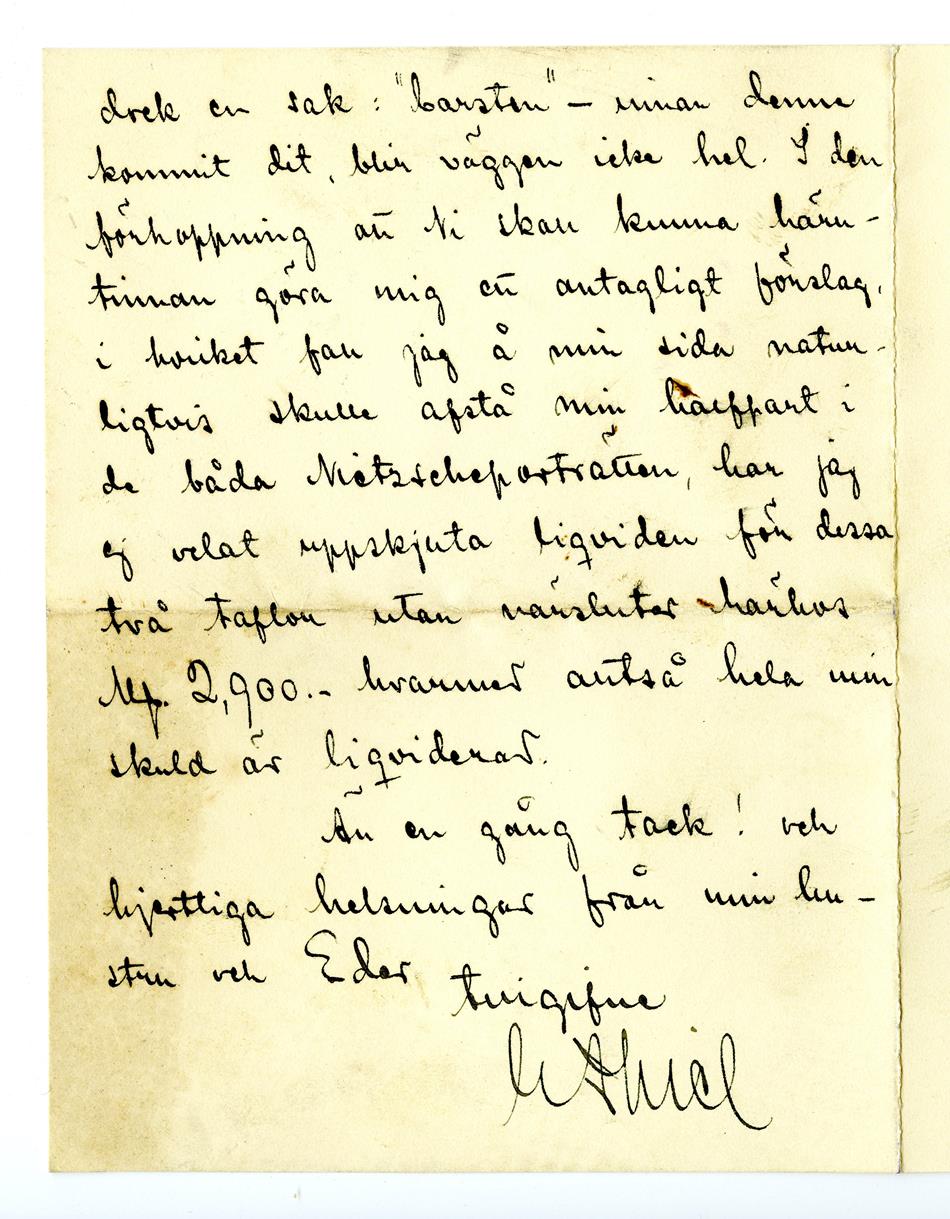 dock en sak: "Carsten" – innan denne
kommit dit, blir väggen icke hel. I den
förhoppning att Ni skall kunna häru-
tinnan göra mig ett antagligt förslag,
i hvilket fall jag å min sida natur-
ligtvis skulle afstå min hälftpart i
de båda Nietzscheporträtten, har jag
ej velat uppskjuta liqviden för dessa
två taflor utan närsluter härhos
Mk. 2,900.- hvarmed alltså hela min
skuld är liqviderad.
Än en gång tack! och
hjerttliga helsningar från min hu-
stru och Eder
tillgifne
E Thiel